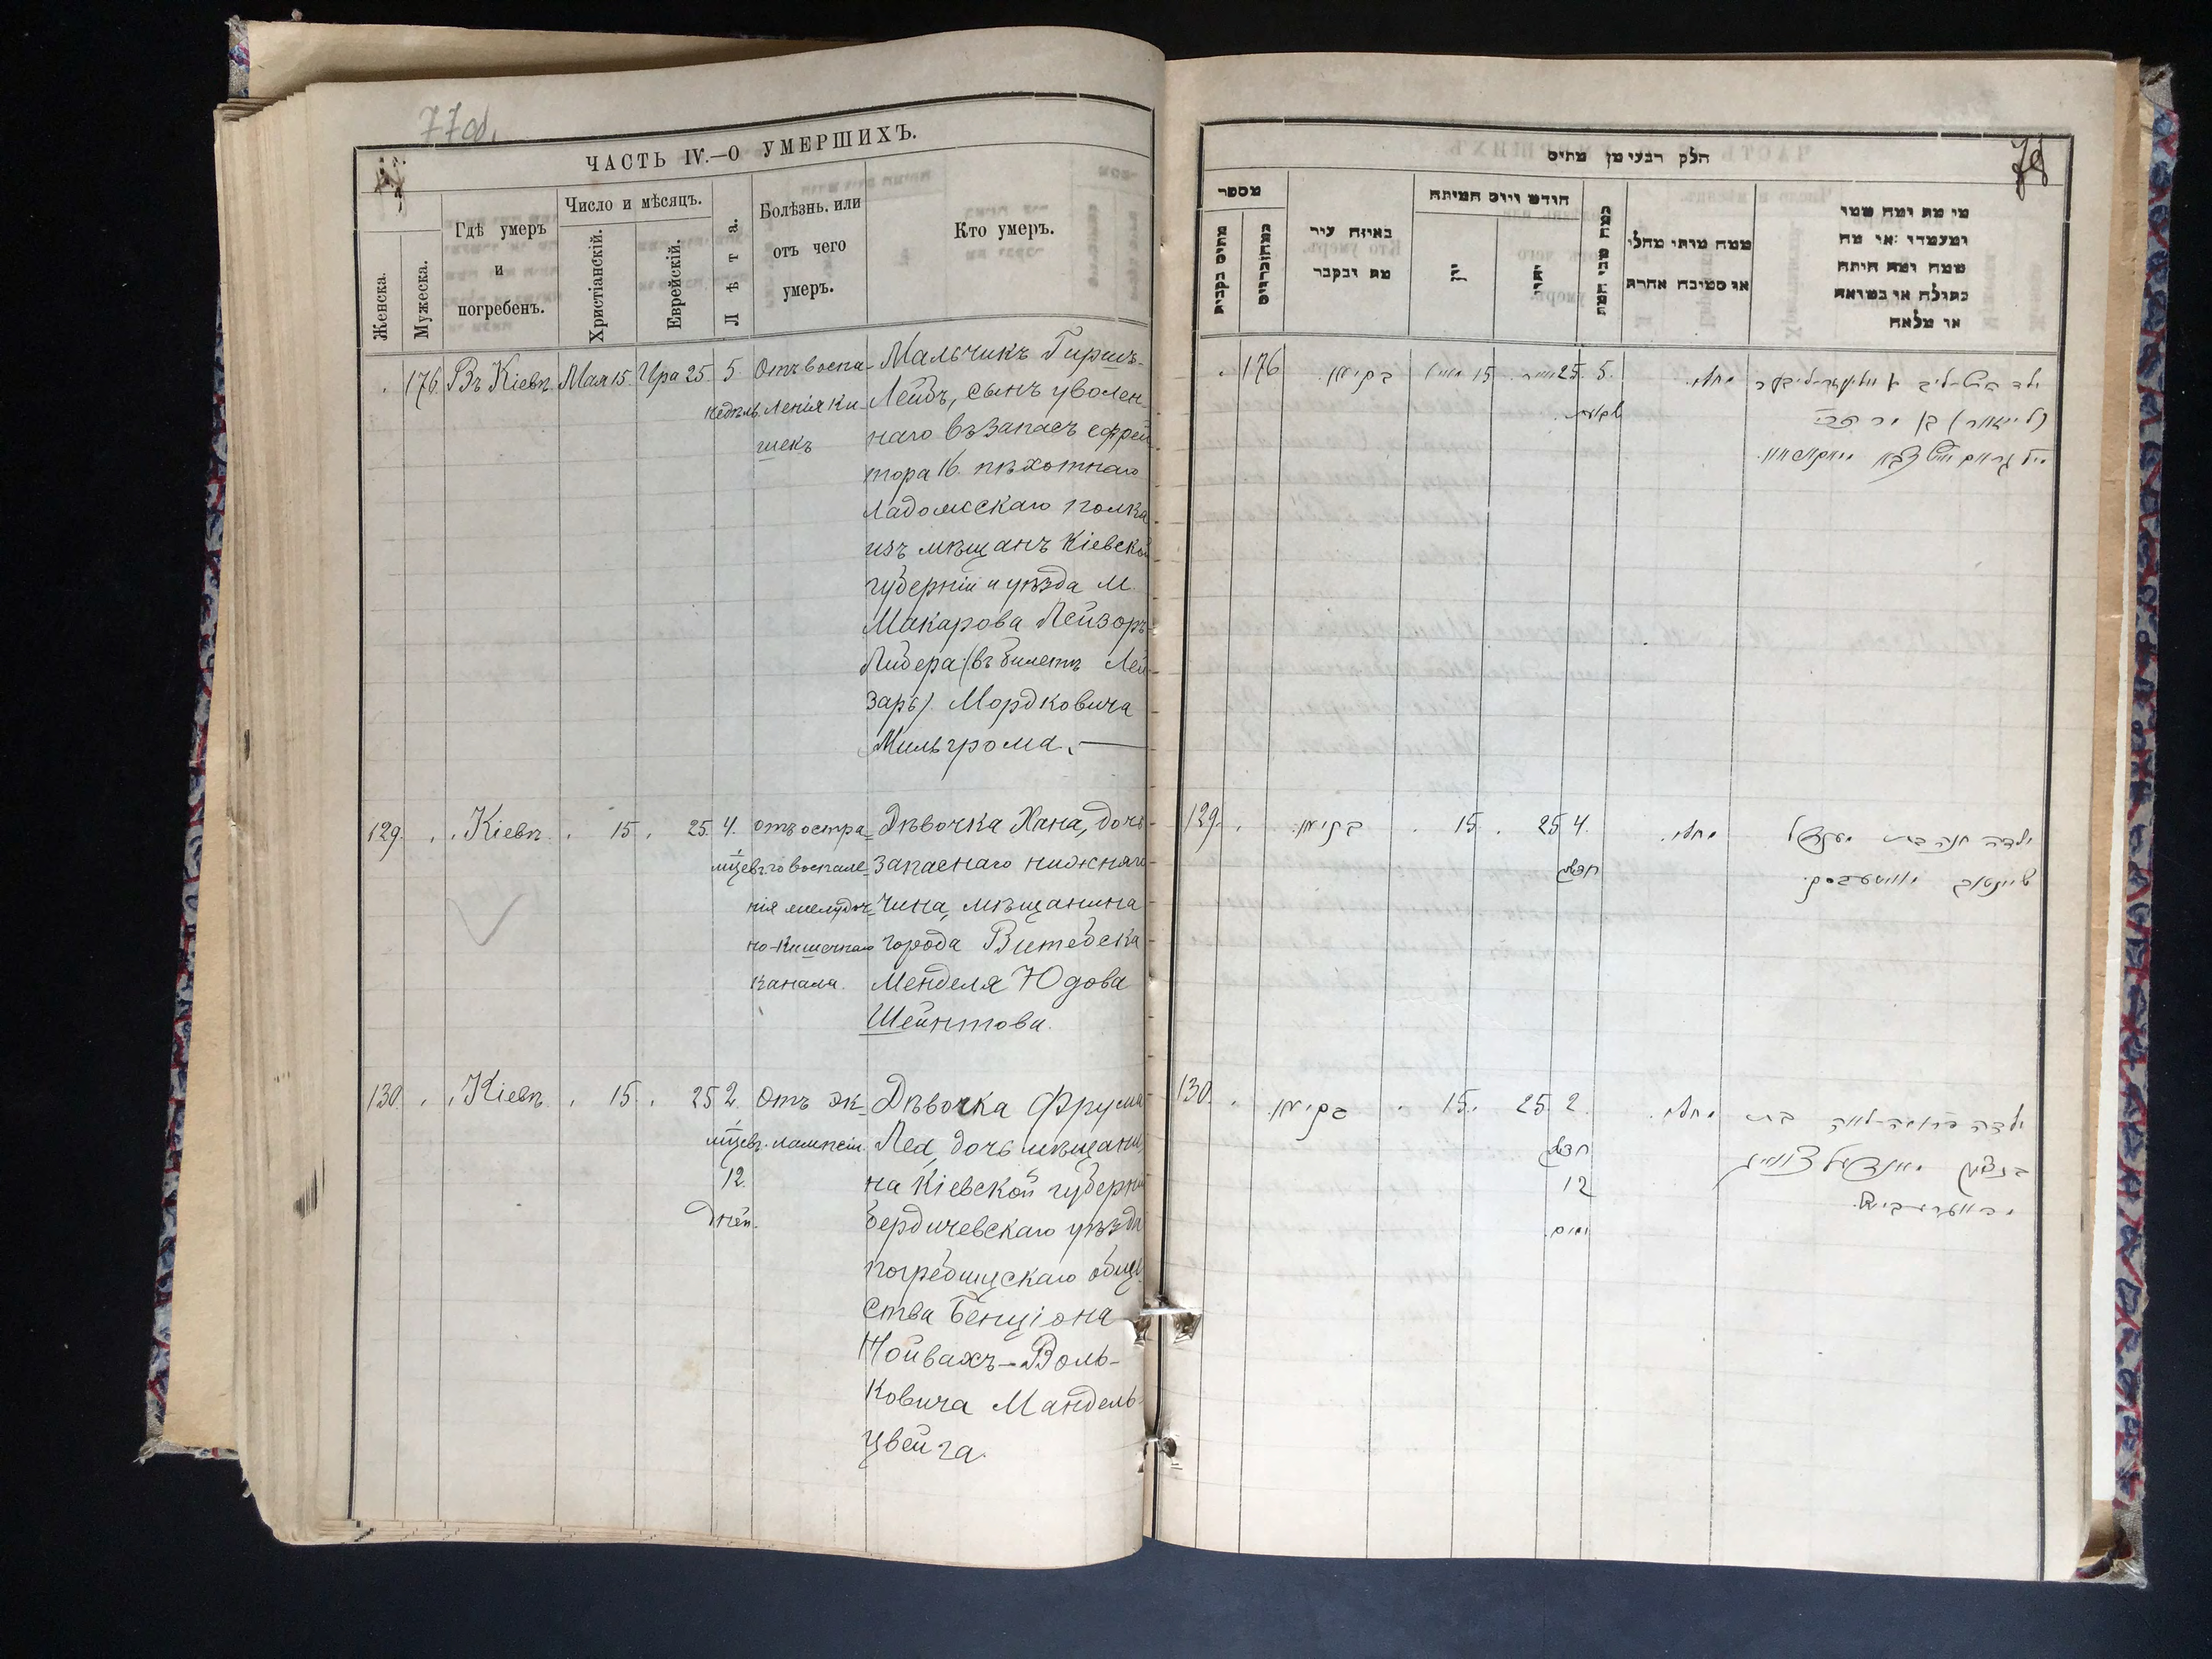 77 об.
ЧАСТЬ IV.—О УМЕРШИХЪ.
Женска.
Мужеска.
Гдѣ умеръ
и
погребенъ.
Число и мѣсяцъ.
Христіанскій.
Еврейскій.
Лѣта.
Болѣзнь, или
отъ чего
умеръ.
Кто умеръ.
176. Въ Кіевѣ. Мая 15. Ира 25. 5.
недѣль.
Отъ воспа-
ленія ки-
шекъ
Мальчикъ Гиршъ-
Лейбъ, сынъ уволен-
наго въ запасъ ефрей
тора 16. пѣхотнаго
Ладожскаго полка
изъ мѣщанъ Кіевской
губерніи и уѣзда М.
Макарова Лейзоръ-
Лидера (въ билетѣ Лей
заръ) Мордковича
Мильгрома.
129. Кіевѣ. 15. 25. 4.
мѣсяцевъ.
Отъ остра-
го воспале-
нія желудоч-
но-кишечнаго
канала.
Дѣвочка Хана, дочь
запаснаго нижняго
чина, мѣщанина
города Витебска
Менделя Юдова
Шейнтова.
130. Кіевѣ. 15. 25 2.
мѣсяцевъ.
12.
дней.
Отъ эк-
лампсіи.
Дѣвочка Фрума
Лея, дочь мѣщани
на Кіевской губерніи
Бердичевскаго уѣзда
погребищскаго обще
ства Бенціона
Нойвахъ-Воль-
ковича Мандель-
цвейга.
78
חלק רבעי מן מתים
מספר
באיזה עיר
מת ונקבר
חודש ויום המיתה
יון
יהודי
כמה שני המת
ממה מותו מחלי
או סטיבה אחרת
מי מת ומה שמו
ומעמדו או מה
שמה ומה היתה
בתולה או נשואה
או מלאה
176 בקיעוו 15 25 5.
שבועות
129. בקיעוו. 15. 25 4.
חדש
ילדה חנה בת מענדל
130. בקיעוו. 15. 25 2.
חדש
12
ימים.
ילדה פרומה-לאה בת
בנציון